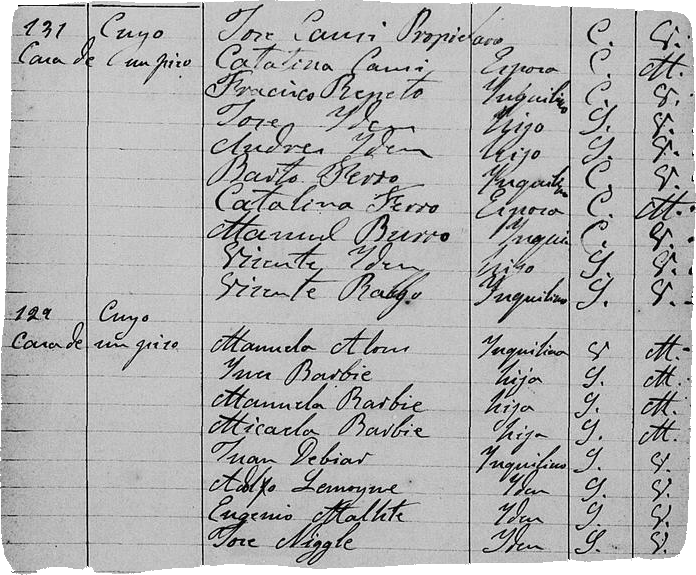 131 Cuyo Jose Canri Propietario C. V.
Casa de un piso Catalina Canri Esposa C. M.
Francisco Repeto Inquilino C. V.
Jose Yden hijo S. V.
Andres Yden hijo S. V.
Barto Ferro Inquilino C. V.
Catalina Ferro Esposa C. M.
Manuel Burro Inquili C. V.
Vicente Yden hijo S. V.
Vicente Inquilino S. V.
129 Cuyo
Casa de un piso Manuela Inquilina V M.
Barbie hija S. M.
Manuela Barbie hija S. M.
Micaela Barbie hija S. M.
Juan Debiar Inquilino S. V.
Adolfo Lemoyne Yden S. V.
Eugenio Yden S. V.
Jose Niggle Yden S. V.